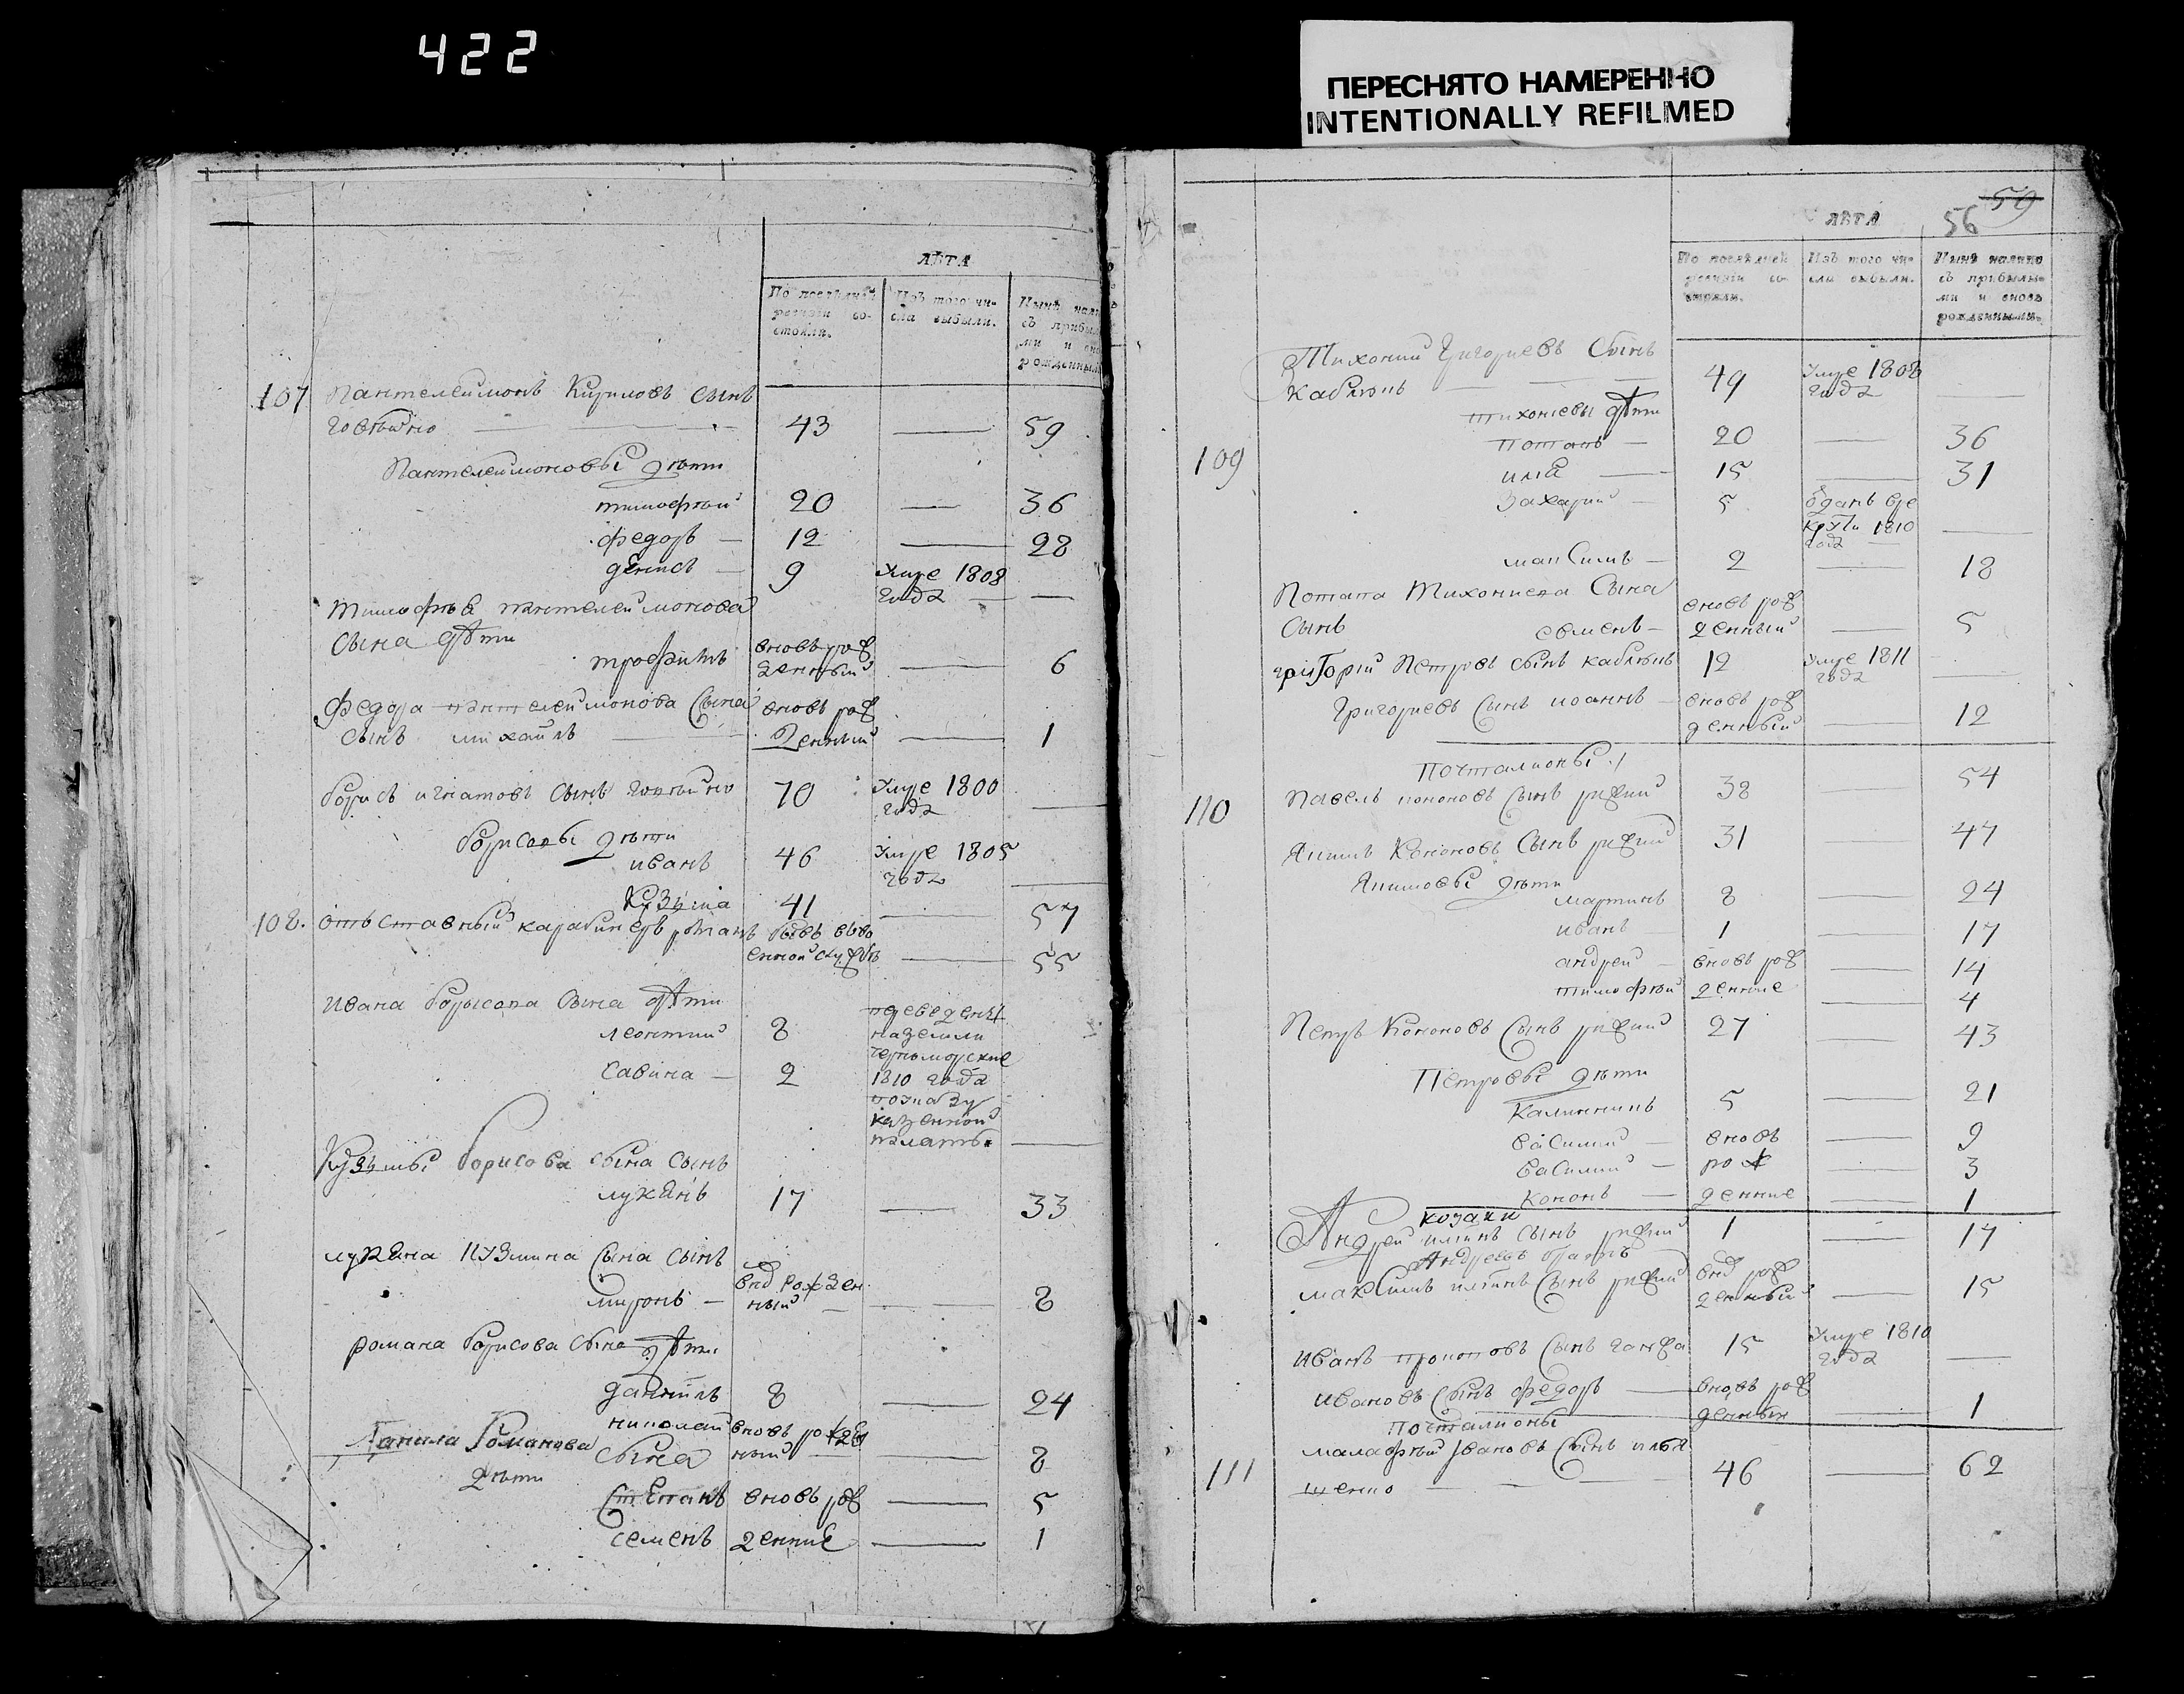 422
ПЕРЕСНЯТО НАМЕРЕННО
INTENTIONALLY REFILMED
ЛѢТА
По послѣдней ревизіи состояли.
Изъ того числа выбыли.
107 Пантелеимонъ Кириловъ сынъ
43 — 59
Пантелеимоновы дѣти
тимофѣй 20 — 36
федоръ — 12 — 28
денисъ — 9 Умре 1808
года — —
Тимофѣя пантелеимонова
сына дѣти
трофимъ вновь рож
денный — 6
Федора пантелеимонова сына вновь рож
сынъ михаилъ — денный — 1
борисъ игнатовъ сынъ 70 Умре 1800
года —
борисовы дѣти
иванъ 46 Умре 1805
года —
Кузьма 41 — 57
108. отъставный карабинеръ романъ
— 55
Ивана борысова сына дѣти
леонтий 8
савина — 2
переведены
на земли
черноморские
1810 года
по указу
казенной
палаты —
Кузьмы борисова сына сынъ
лукянъ 17 — 33
лукяна кузмина сына сынъ
миронъ — внов рожден
ный — — 8
романа борисова сына дѣти
даниилъ 8 — 24
николай вновь рожде
ный — 8
Данила Романова
сына
дѣти
степанъ вновь рож — 5
семенъ денние — 1
59
56
ЛѢТА
По послѣдней ревизіи состояли.
Изъ того числа выбыли.
Нынѣ налицо
съ прибылы-
ми и вновь
рожденными.
Тихоний Григориевъ Сынъ
Каблюнъ — 49 Умре 1808
года —
тихониевы дѣти
109 потапъ — 20 — 36
илиа — 15 — 31
Захарий — 5 одань вре
круты 1810
года — —
максимъ — 2 — 18
Потапа Тихониева Сына
Сынъ семенъ — вновь рож
денный — 5
григорий Петровъ сынъ каблюнъ 12 Умре 1811
года —
Григориевъ Сынъ иоаннъ — вновь рож
денный — 12
Почталионы
110 Павелъ кононовъ Сынъ рижий 38 — 54
Якимъ Кононовъ Сынъ рижий 31 — 47
Якимовы дѣти
мартинъ 8 — 24
иванъ — 1 — 17
андрей — вновь рож — 14
тимофѣй денние — 4
Петръ Кононовъ Сынъ рижий 27 — 43
Петровы дѣти
Калинникъ 5 — 21
василий — вновь — 9
василий — рож — 3
кононъ — денние — 1
козаки
Андрей илиинъ сынъ рижий 1 — 17
Андреевъ братъ
максимъ илиинъ Сынъ рижий внов рож
денный — 15
Иванъ прокоповъ Сынъ ганжа 15 Умре 1810
года —
Ивановъ Сынъ федоръ — вновь рож
денный — 1
Почталионы
малафѣй Ивановъ Сынъ илья
111 щенко — — 46 — 62